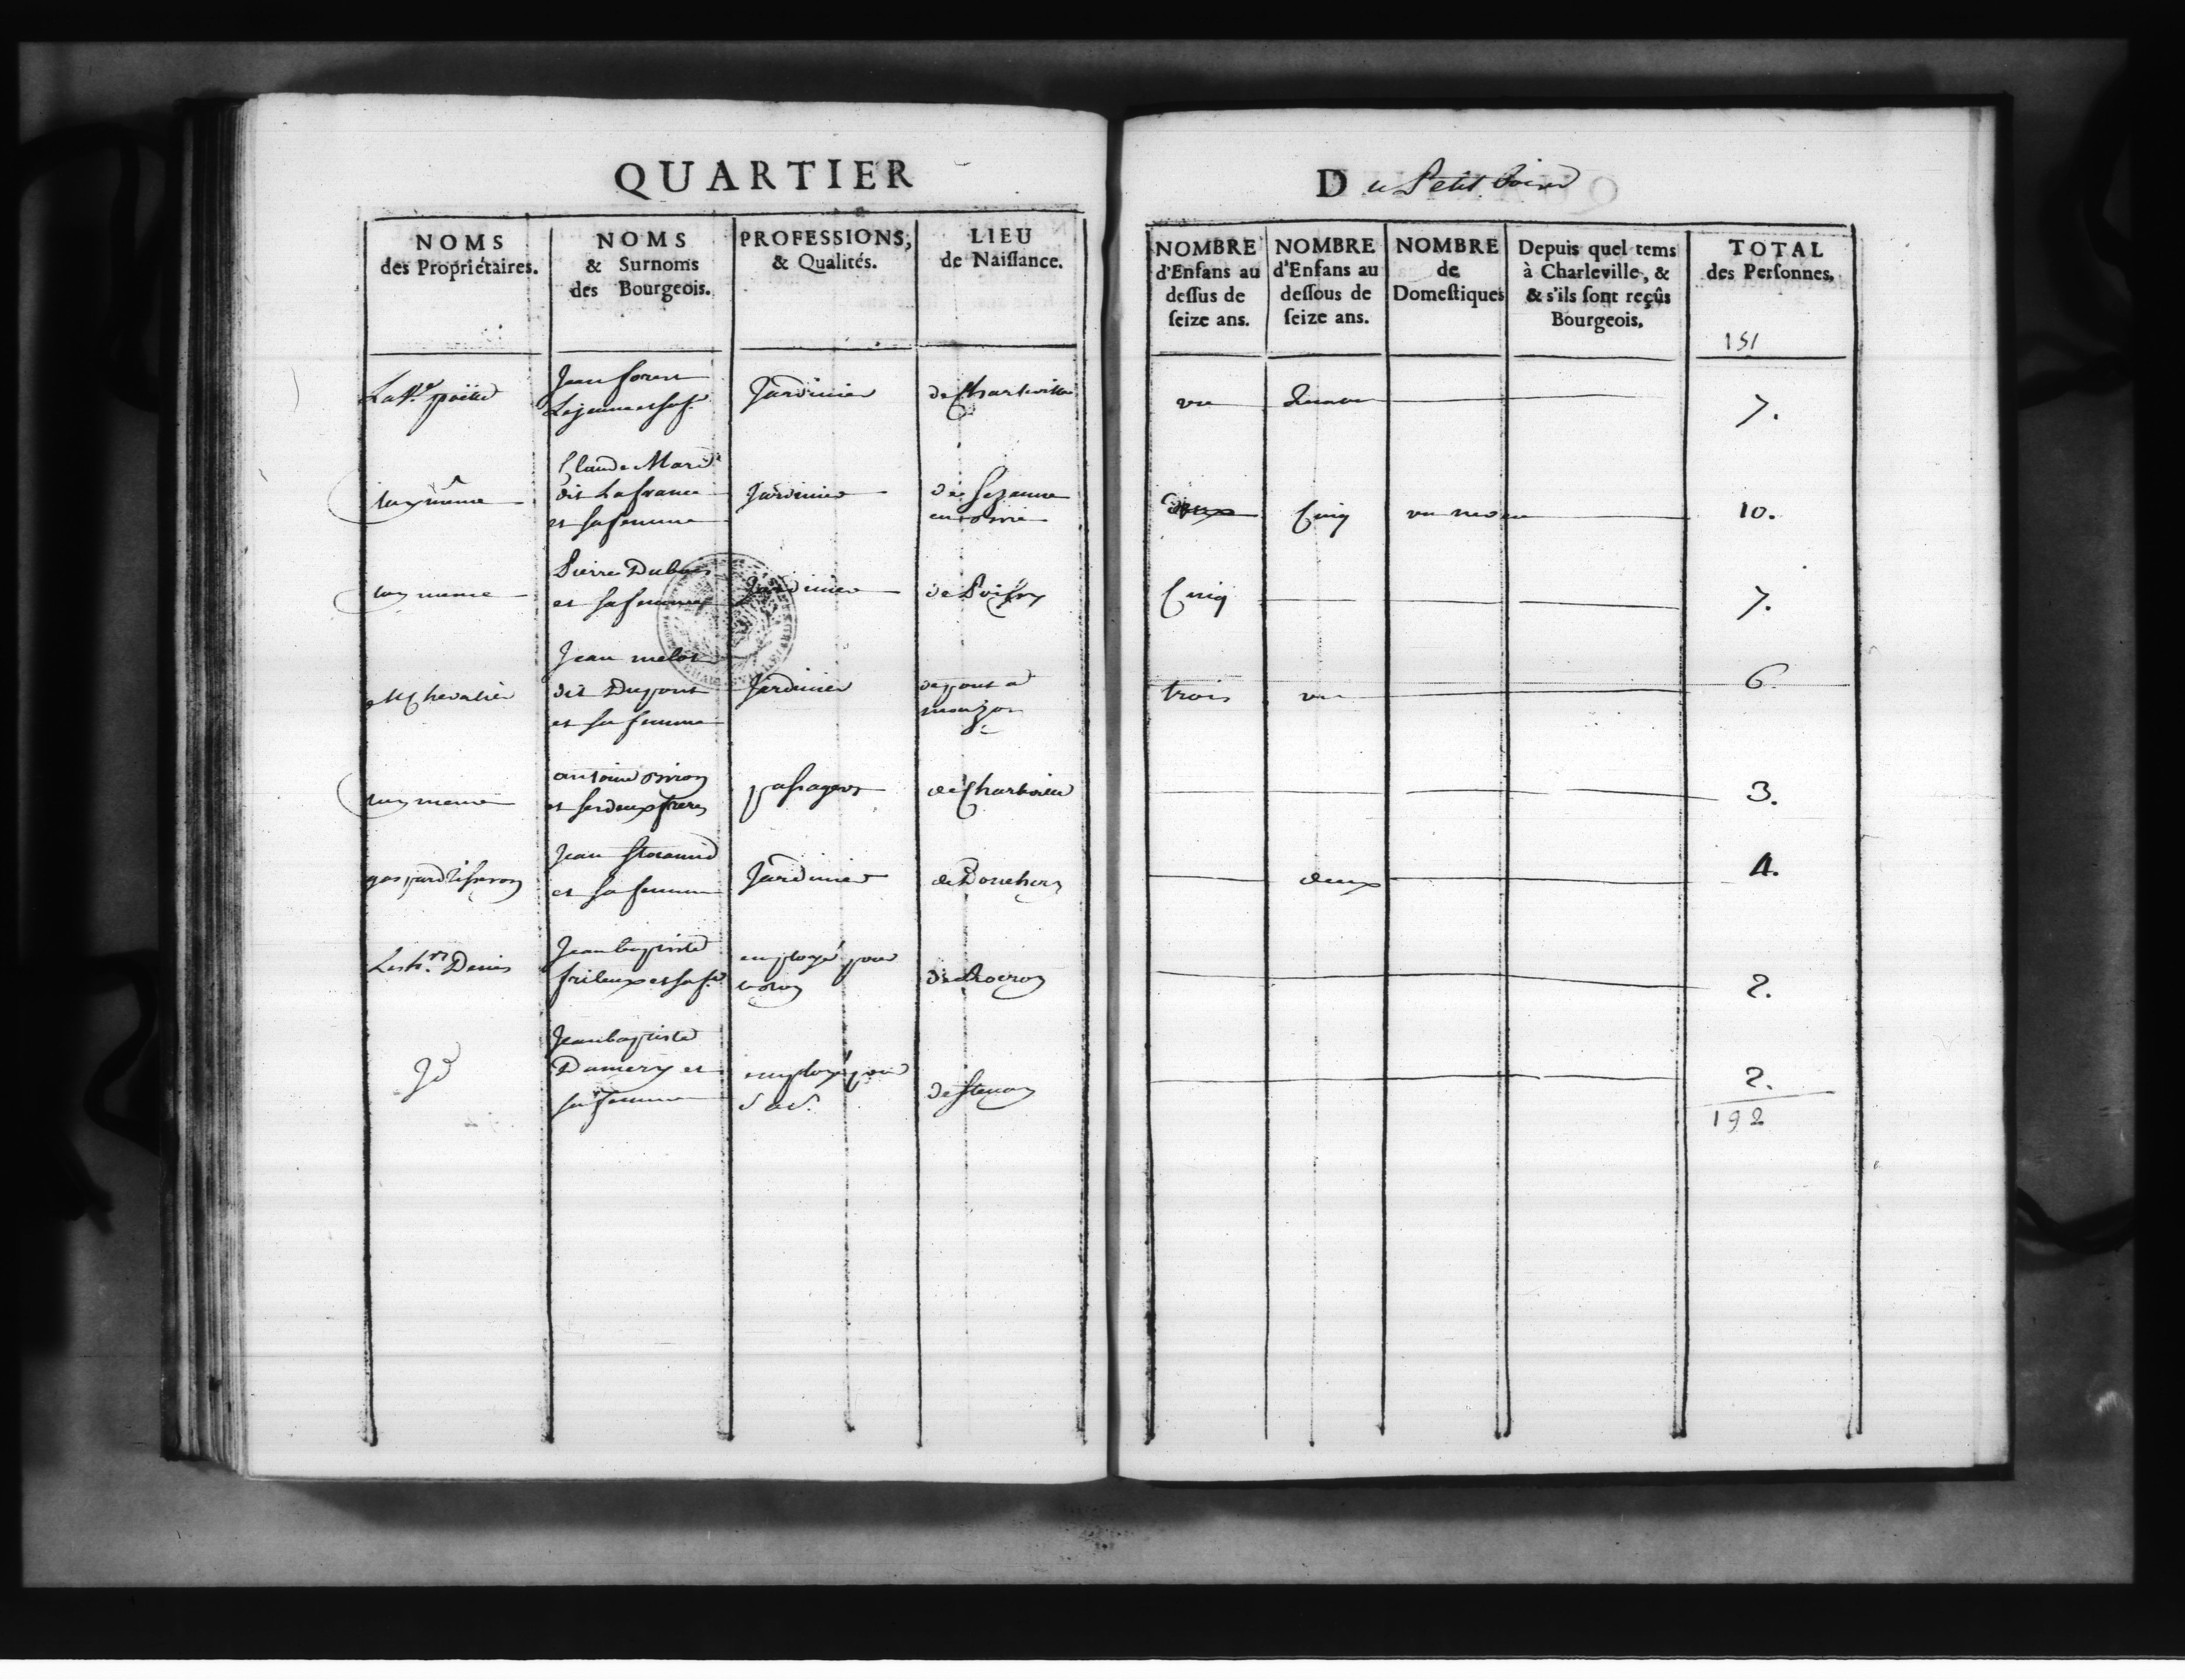 QUARTIER
NOMS des Propriétaires.
NOMS & Surnoms des Bourgeois.
PROFESSIONS, & Qualités.
LIEU de Naissance.
Du Petit
NOMBRE d'Enfans au dessus de seize ans.
NOMBRE d'Enfans au dessous de seize ans.
NOMBRE de Domestiques
Depuis quel tems à Charleville, & & s'ils sont reçûs Bourgeois.
TOTAL des Personnes.
151
Jean forest
Lejeune et sa fe
Jardinier
de Charleville
un
quatre
7.
luy même
Claude
dit Lafrance
et sa femme
Jardinier
de Sezanne
en brie
Cinq
un
10.
luy meme
Pierre Dubois
et sa femme
Jardinier
de
Cinq
7.
Chevalier
Jean melot
dit Dupont
et sa femme
Jardinier
de pont a
mouzon
trois
un
6
luy meme
antoine
et ses deux freres
passagers
de Charleville
3.
gaspard
Jean
et sa femme
Jardinier
de Donchery
deux
4.
Les h.rs Denis
Jean baptiste
frileux et sa fe
employé pour
de Rocroy
2.
Jd
Jean baptiste
Damery et
sa femme
employé pour
de Stenay
2.
192